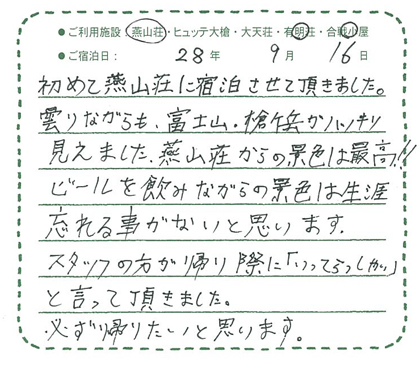 ●ご利用施設 燕山荘・ヒュッテ大槍・大天荘・有明荘・合戦小屋
●ご宿泊日: 28年 9月 16日
初めて燕山荘に宿泊させて頂きました。
曇りながらも、富士山・槍岳がハッキリ
見えました。燕山荘からの景色は最高!!
ビールを飲みながらの景色は生涯
忘れる事がないと思います。
スタッフの方が帰り際に「いってらっしゃい」
と言って頂きました。
必ず帰りたいと思います。